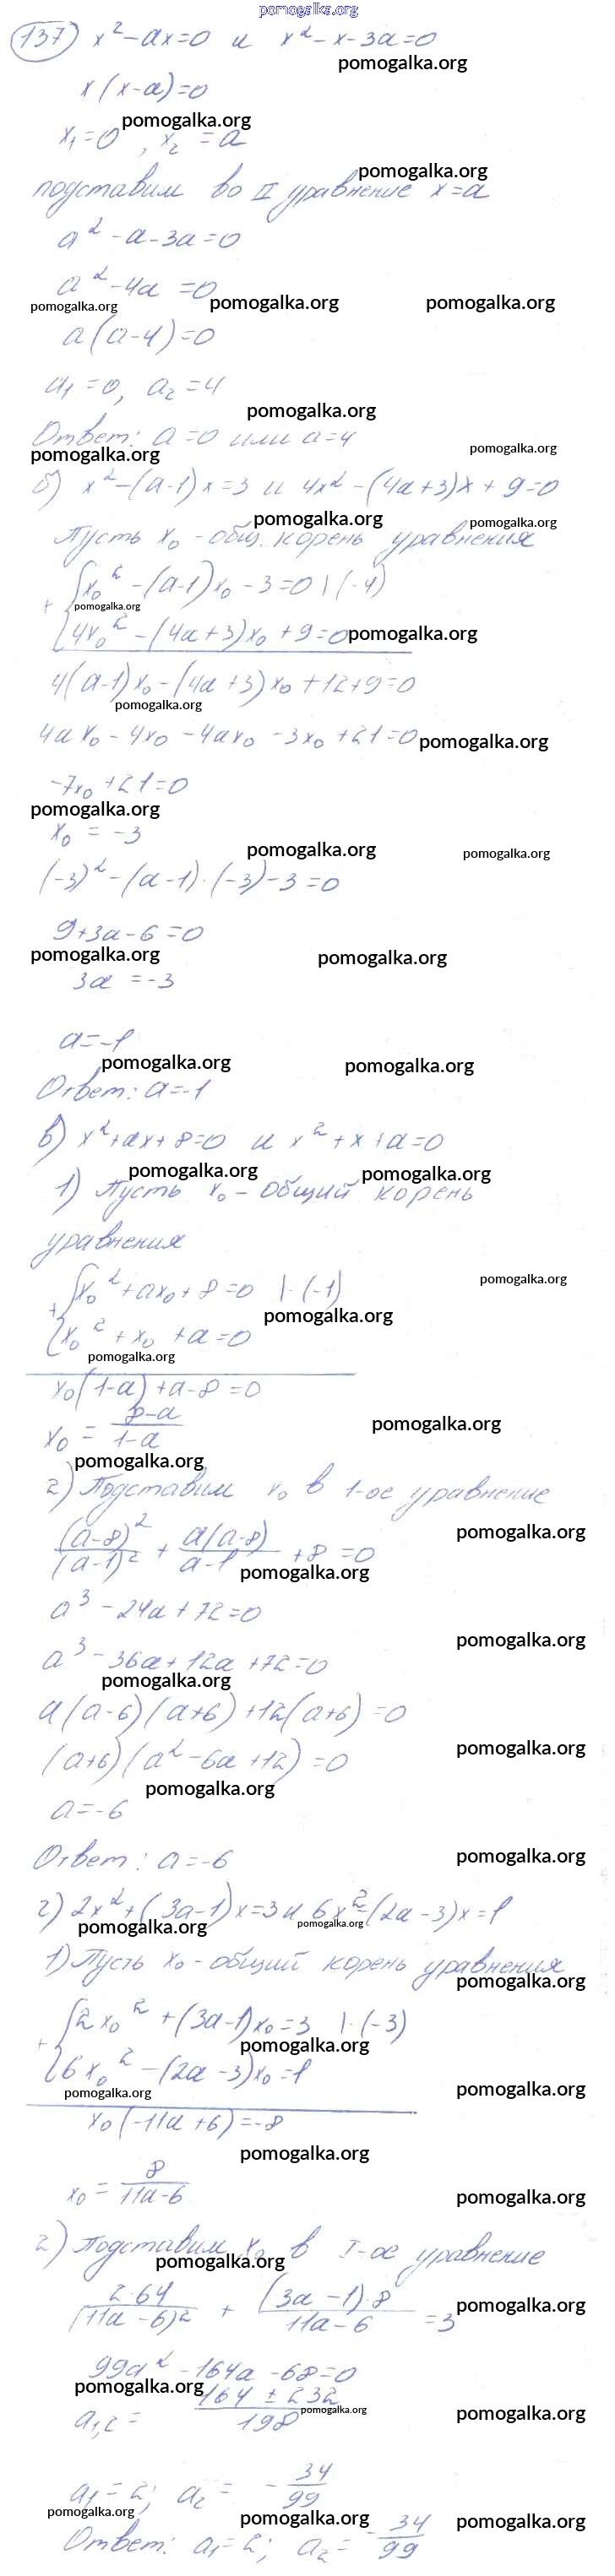 pomogalka.org
137) x² - ax = 0 и x² - x - 3a = 0
pomogalka.org
x(x-a)=0
pomogalka.org
x₁=0, x₂ = a
pomogalka.org
подставим во II уравнение x=a
a² - a - 3a = 0
a² - 4a = 0
pomogalka.org pomogalka.org pomogalka.org
a(a-4)=0
a₁ = 0, a₂ = 4
pomogalka.org
Ответ: a=0 или a=4
pomogalka.org pomogalka.org
б) x² - (a-1)x = 3 и 4x² - (4a+3)x + 9 = 0
pomogalka.org pomogalka.org
Пусть x₀ - общ. корень уравнения
x₀² - (a-1)x₀ - 3 = 0 | (-4)
pomogalka.org
+ { 4x₀² - (4a+3)x₀ + 9 = 0
pomogalka.org
4(a-1)x₀ - (4a+3)x₀ + 12 + 9 = 0
pomogalka.org
4ax₀ - 4x₀ - 4ax₀ - 3x₀ + 21 = 0
pomogalka.org
-7x₀ + 21 = 0
pomogalka.org
x₀ = -3
pomogalka.org pomogalka.org
(-3)² - (a-1)·(-3) - 3 = 0
9 + 3a - 6 = 0
pomogalka.org pomogalka.org
3a = -3
a = -1
pomogalka.org pomogalka.org
Ответ: a = -1
в) x² + ax + 8 = 0 и x² + x + a = 0
pomogalka.org pomogalka.org
1) Пусть x₀ - общий корень
уравнения
pomogalka.org
+ { x₀² + ax₀ + 8 = 0 | ·(-1)
pomogalka.org
x₀² + x₀ + a = 0
pomogalka.org
x₀(1-a) + a - 8 = 0
x₀ = (8-a)/(1-a)
pomogalka.org
pomogalka.org
2) Подставим x₀ в 1-ое уравнение
(a-8)²/(a-1)² + a(a-8)/(a-1) + 8 = 0
pomogalka.org
pomogalka.org
a³ - 24a + 72 = 0
pomogalka.org
a³ - 36a + 12a + 72 = 0
pomogalka.org
a(a-6)(a+6) + 12(a+6) = 0
(a+6)(a² - 6a + 12) = 0
pomogalka.org
pomogalka.org
a = -6
Ответ: a = -6
pomogalka.org
г) 2x² + (3a-1)x = 3 и 6x² - (2a-3)x = 1
pomogalka.org pomogalka.org
1) Пусть x₀ - общий корень уравнения
pomogalka.org
+ { 2x₀² + (3a-1)x₀ = 3 | ·(-3)
pomogalka.org
6x₀² - (2a-3)x₀ = 1
pomogalka.org pomogalka.org
x₀(-11a+6) = -8
pomogalka.org
x₀ = 8/(11a-6)
pomogalka.org
2) Подставим x₀ в I-ое уравнение
pomogalka.org
2·64/(11a-6)² + (3a-1)·8/(11a-6) = 3
pomogalka.org
99a² - 164a - 68 = 0
pomogalka.org
a₁,₂ = (164 ± 232)/198
pomogalka.org pomogalka.org
a₁ = 2; a₂ = -34/99
pomogalka.org pomogalka.org pomogalka.org
Ответ: a₁ = 2; a₂ = -34/99